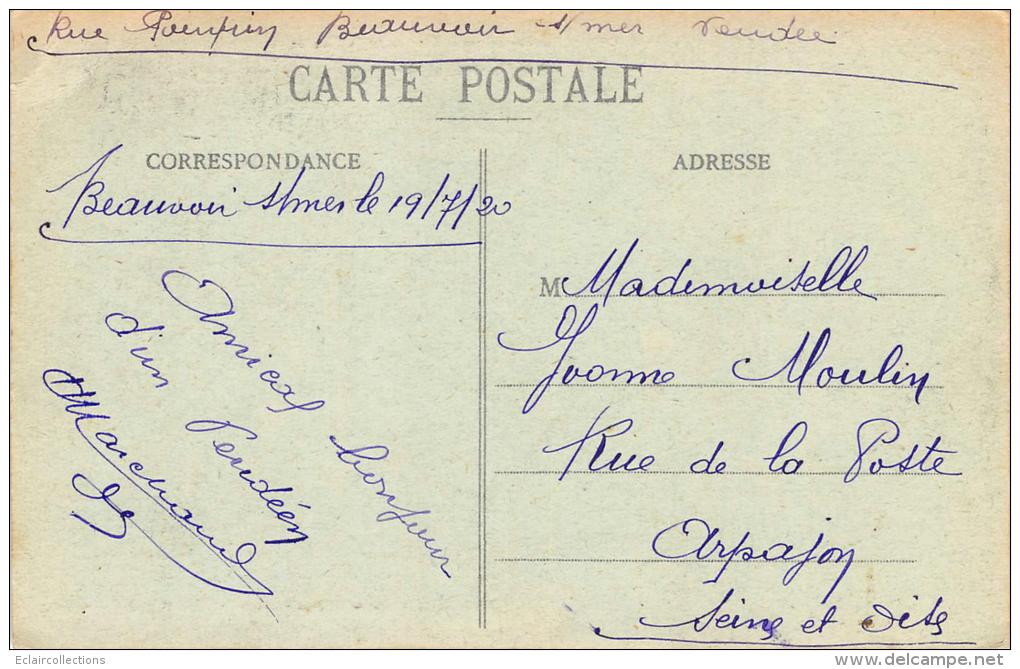 Rue Beauvoir s/mer Vendée
CARTE POSTALE
CORRESPONDANCE
Beauvoir s/mer le 19/7/20
Amical bonjour
d'un Vendéen
Marchand
ADRESSE
M Mademoiselle
Yvonne Moulin
Rue de la Poste
Arpajon
Seine et Oise
Eclaircollections
delcampe.net